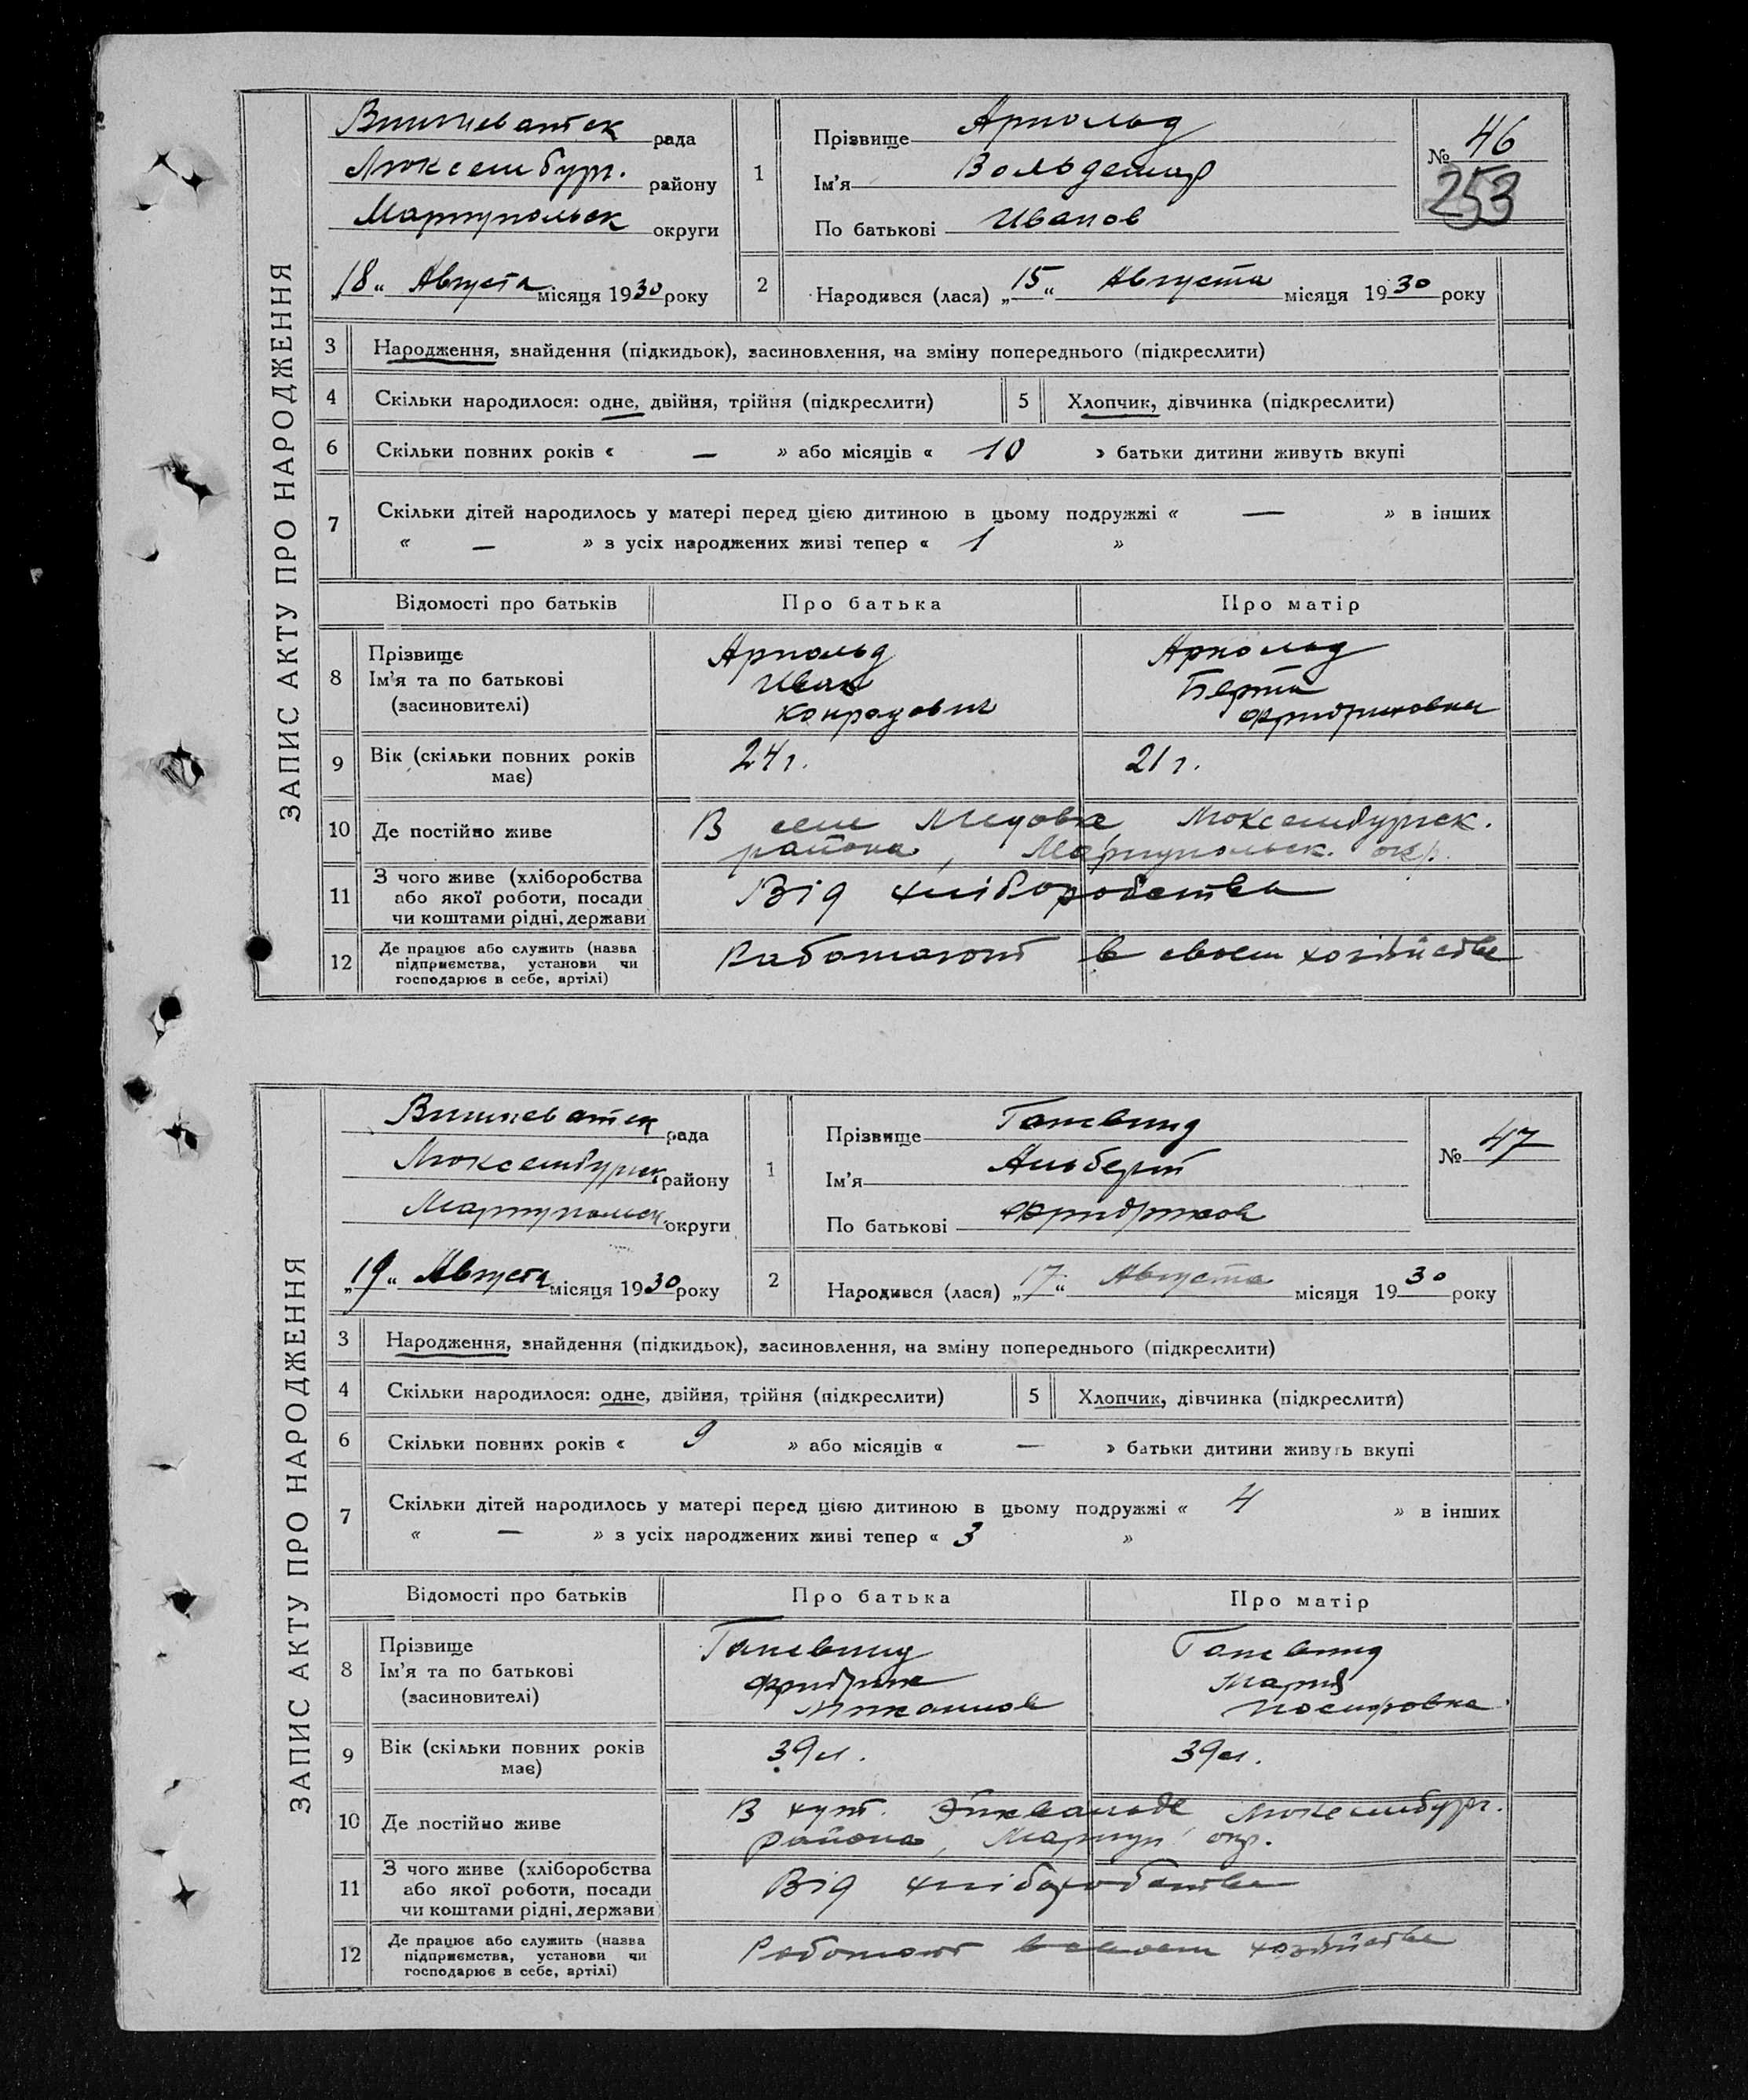 ЗАПИС АКТУ ПРО НАРОДЖЕННЯ
Вишневатск рада
Люксембург. району
Мариупольск округи
„18“ Августа місяця 1930 року
1
Прізвище Арнольд
Ім'я Вольдемар
По батькові Иванов
№ 46
253
2 Народився (лася) „15“ Августа місяця 1930 року
3 Народження, знайдення (підкидьок), засиновлення, на зміну попереднього (підкреслити)
4 Скільки народилося: одне, двійня, трійня (підкреслити) 5 Хлопчик, дівчинка (підкреслити)
6 Скільки повних років « — » або місяців « 10 » батьки дитини живуть вкупі
7 Скільки дітей народилось у матері перед цією дитиною в цьому подружжі « — » в інших
« — » з усіх народжених живі тепер « 1 »
Відомості про батьків Про батька Про матір
8
Прізвище
Ім'я та по батькові
(засиновителі)
Арнольд
Иван
Конрадович
Арнольд
Берта
Фридриховна
9 Вік (скільки повних років
має)
24 г. 21 г.
10 Де постійно живе
В селе Медовка Люксембургск.
района, Мариупольск. окр.
11
З чого живе (хліборобства
або якої роботи, посади
чи коштами рідні, держави
Від хліборобства
12
Де працює або служить (назва
підприємства, установи чи
господарює в себе, артілі)
Работают в своем хозяйстве
ЗАПИС АКТУ ПРО НАРОДЖЕННЯ
Вишневатск рада
Люксембургск району
Мариупольск. округи
„19“ Августа місяця 1930 року
1
Прізвище
Ім'я Альберт
По батькові Фридрихов
№ 47
2 Народився (лася) „17“ Августа місяця 1930 року
3 Народження, знайдення (підкидьок), засиновлення, на зміну попереднього (підкреслити)
4 Скільки народилося: одне, двійня, трійня (підкреслити) 5 Хлопчик, дівчинка (підкреслити)
6 Скільки повних років « 9 » або місяців « — » батьки дитини живуть вкупі
7 Скільки дітей народилось у матері перед цією дитиною в цьому подружжі « 4 » в інших
« — » з усіх народжених живі тепер « 3 »
Відомості про батьків Про батька Про матір
8
Прізвище
Ім'я та по батькові
(засиновителі)
Фридрих
Мария
Иосифовна
9 Вік (скільки повних років
має)
39 л. 39 л.
10 Де постійно живе
В хут. Эйхвальде Люксембург.
района, Мариуп. окр.
11
З чого живе (хліборобства
або якої роботи, посади
чи коштами рідні, держави
Від хліборобства
12
Де працює або служить (назва
підприємства, установи чи
господарює в себе, артілі)
Работают в своем хозяйстве